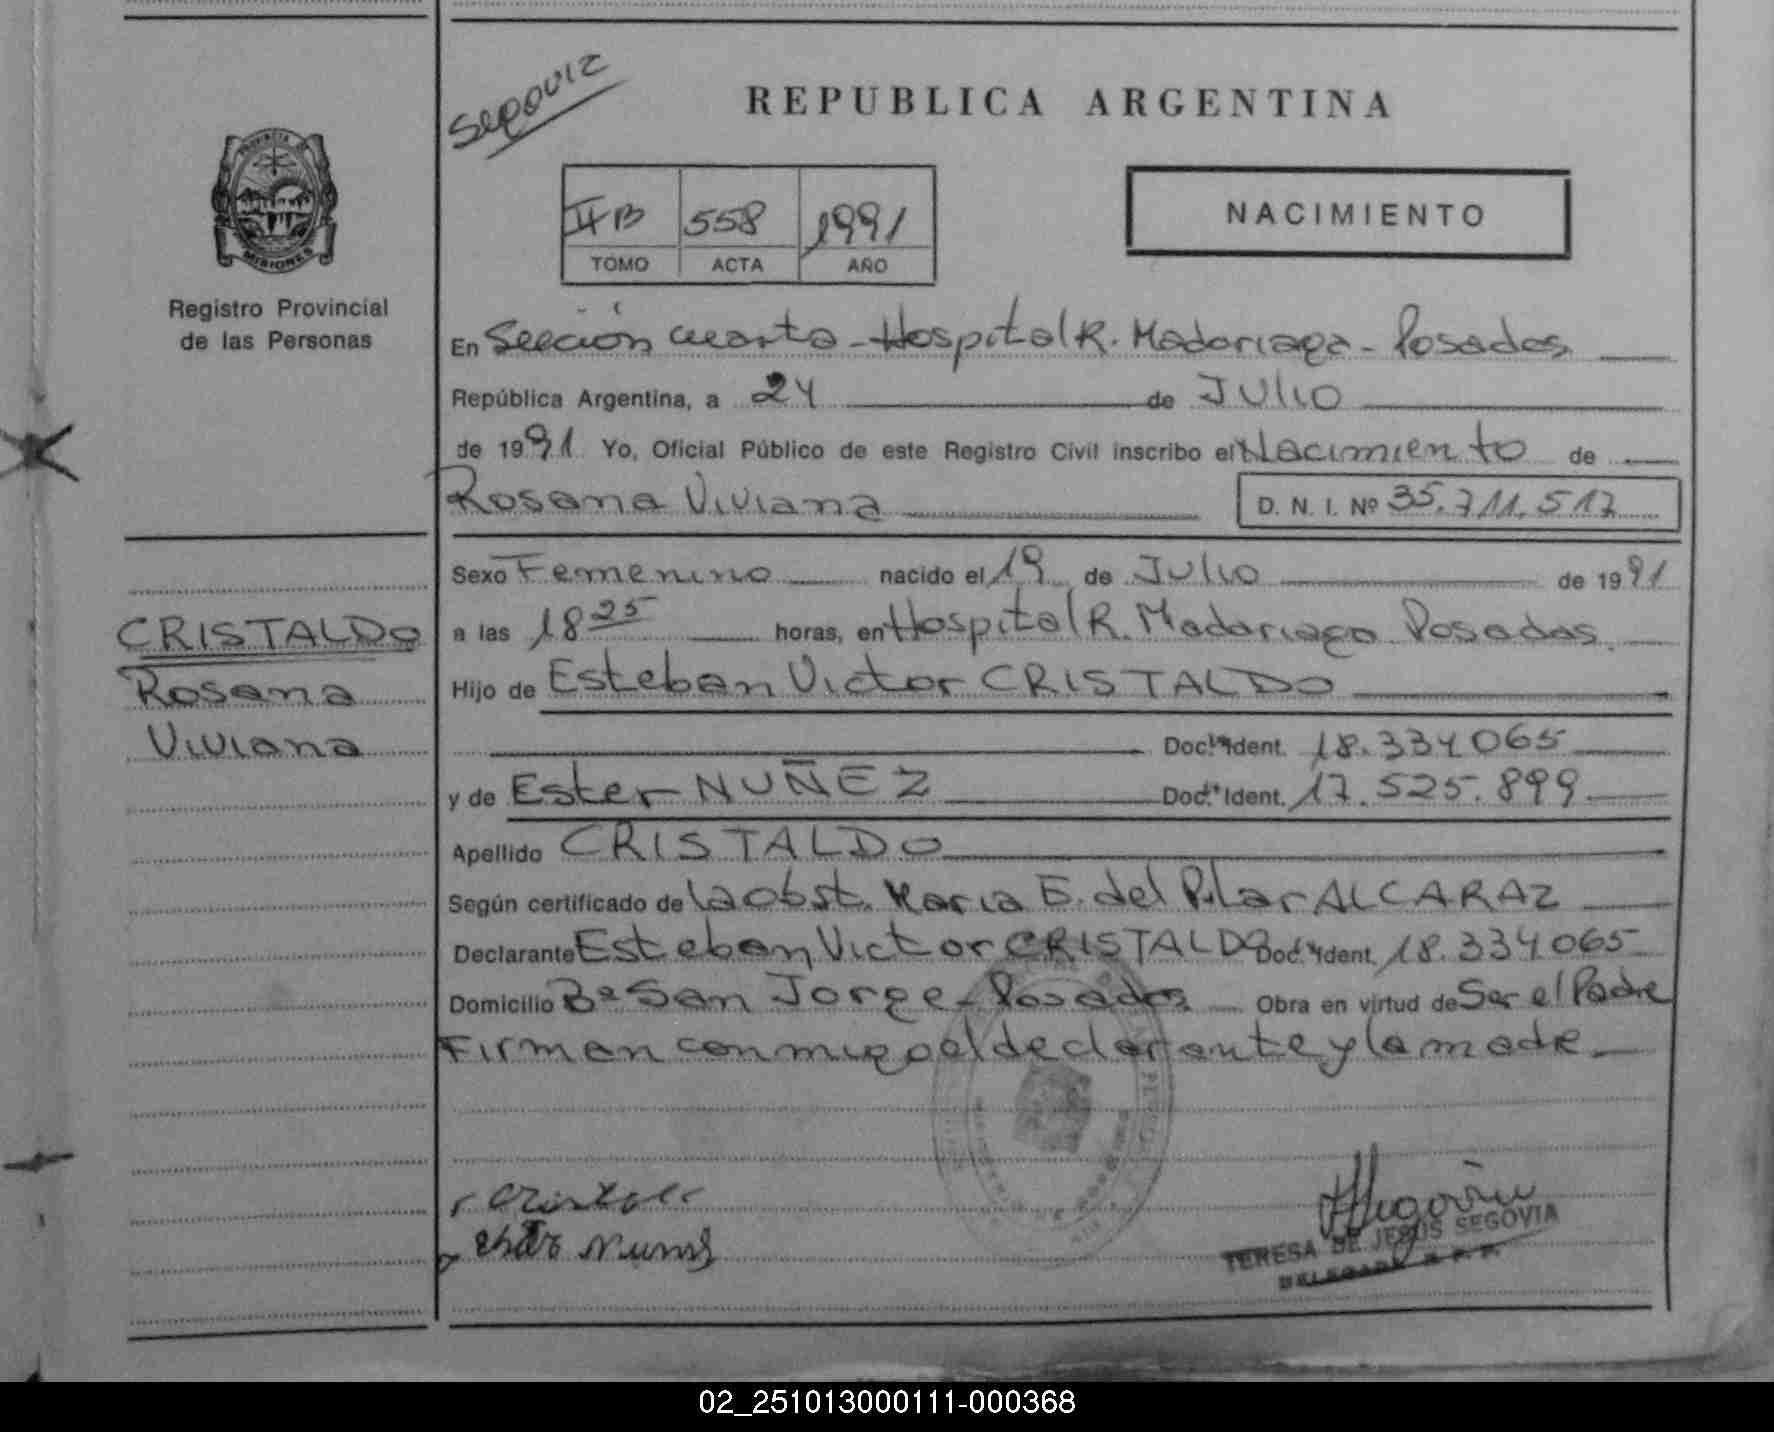 Segovia
REPUBLICA ARGENTINA
PROVINCIA DE
MISIONES
Registro Provincial
de las Personas
II B 558 1991
TOMO ACTA AÑO
NACIMIENTO
En Sección cuarta - Hospital R. Madariaga - Posadas
República Argentina, a 24 de Julio
de 1991 Yo, Oficial Público de este Registro Civil inscribo el Nacimiento de
Rosana Viviana D. N. I. Nº 35.711.517
Sexo Femenino nacido el 19 de Julio de 1991
a las 18 25 horas, en Hospital R. Madariaga Posadas.
Hijo de Esteban Victor CRISTALDO
Doc. Ident. 18.334065
y de Ester NUÑEZ Doc. Ident. 17.525.899
Apellido CRISTALDO
Según certificado de la obst. Maria E. del Pilar ALCARAZ
Declarante Esteban Victor CRISTALDO Doc. Ident. 18.334065
Domicilio Bº San Jorge - Posadas Obra en virtud de Ser el Padre
Firman conmigo el declarante y la madre
CRISTALDO
Rosana
Viviana
Cristaldo
Ester Nuñez
Segovia
TERESA DE JESUS SEGOVIA
DELEGADA R. P. P.
02_251013000111-000368